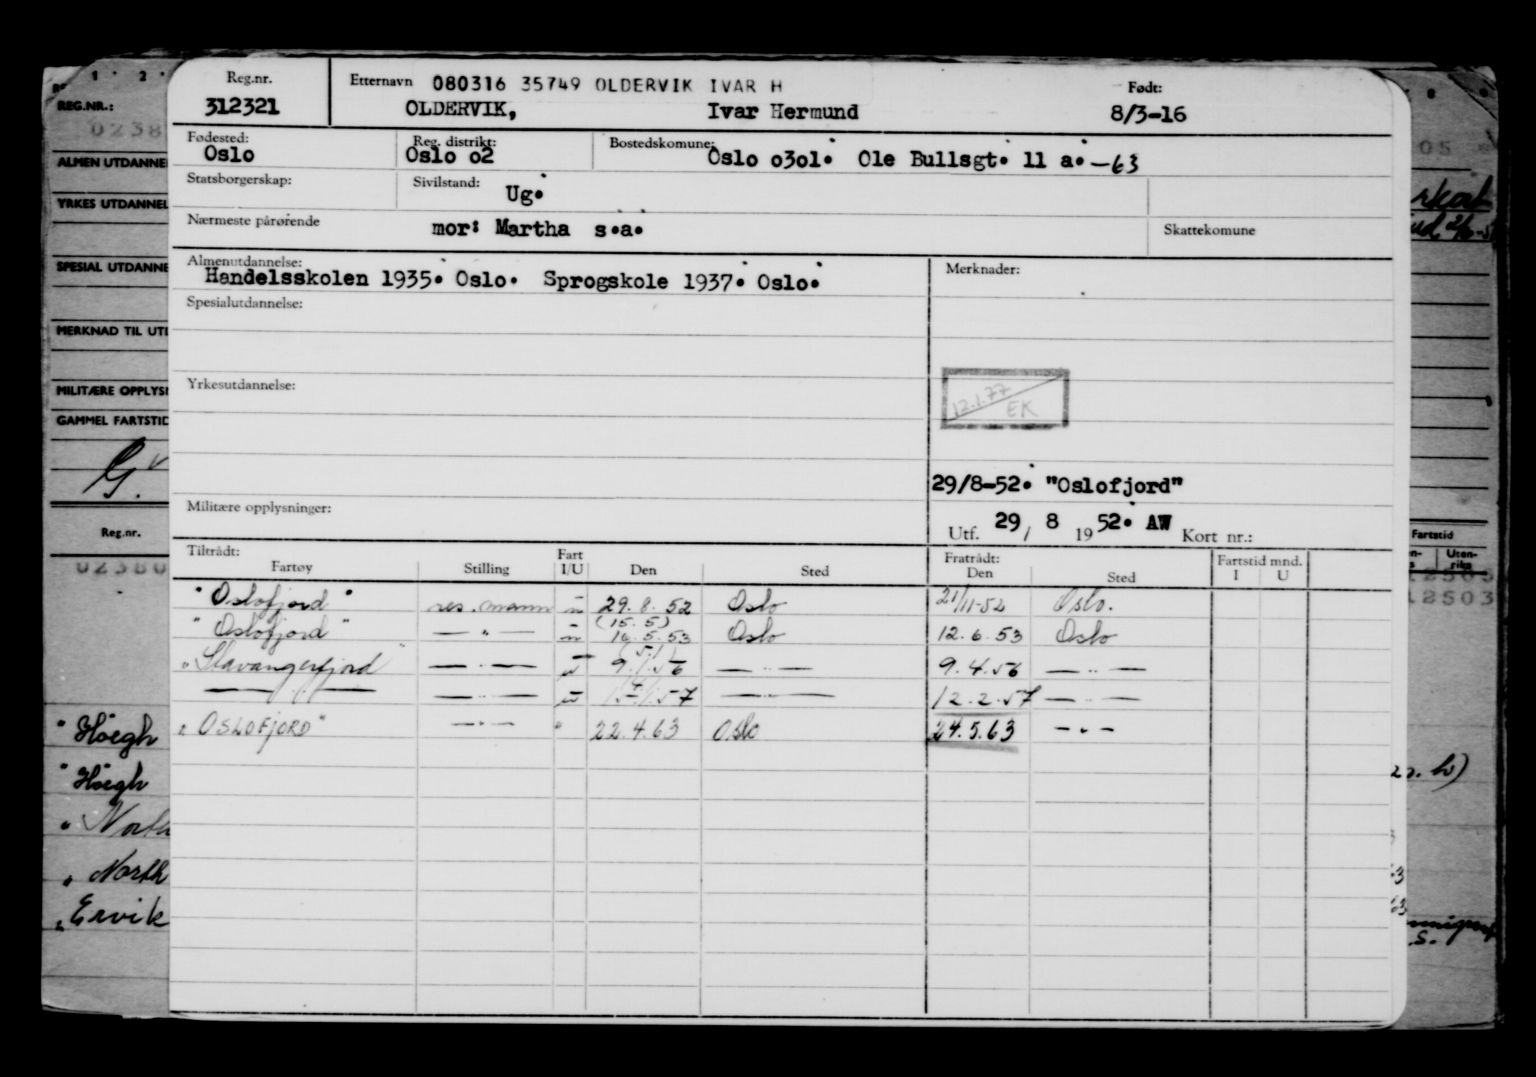 Reg.nr. Etternavn 080316 35749 OLDERVIK IVAR H Født:
312321 OLDERVIK, Ivar Hermund 8/3-16
Fødested: Reg. distrikt: Bostedskommune:
Oslo Oslo o2 Oslo o3o1. Ole Bullsgt. 11 a. -63
Statsborgerskap: Sivilstand: Ug.
Nærmeste pårørende mor: Martha s.a. Skattekomune
Almenutdannelse: Merknader:
Handelsskolen 1935. Oslo. Sprogskole 1937. Oslo.
Spesialutdannelse:
Yrkesutdannelse:
12.1.77
EK
29/8-52. "Oslofjord"
Militære opplysninger:
Utf. 29 / 8 1952. AW Kort nr.:
Tiltrådt: Fart Fratrådt: Fartstid mnd.
Fartøy Stilling I/U Den Sted Den Sted I U
"Oslofjord" res.mann u 29.8.52 Oslo 21/11-52 Oslo.
"Oslofjord" — " — u (15.5) 16.5.53 Oslo 12.6.53 Oslo
"Stavangerfjord" — " — u 9. .56 — " — 9.4.56 — " —
— " — — " — u .57 — " — 12.2.57 — " —
"OSLOFJORD" — " — " 22.4.63 Oslo 24.5.63 — " —
1 2
REG.NR.:
0238
ALMEN UTDANNE
YRKES UTDANNEL
SPESIAL UTDANNE
MERKNAD TIL UTD
MILITÆRE OPPLYS
GAMMEL FARTSTID
G.
Reg.nr.
02380
"Höegh
"Höegh
"North
"North
"Ervik
8
05
Fartstid
Uten-
riks
12503
12503